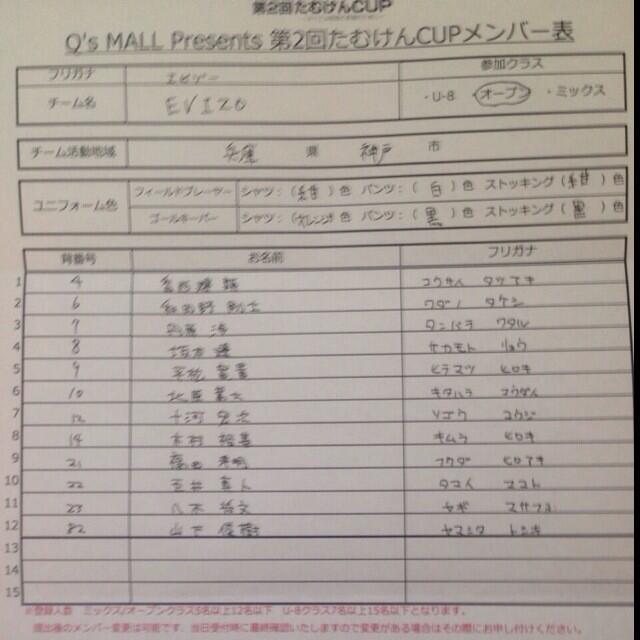 第2回たむけんCUP
Q's MALL Presents 第2回たむけんCUPメンバー表
フリガナ エビゾー 参加クラス
チーム名 EVIZO ・U-8 オープン ・ミックス
チーム活動地域 兵庫 県 神戸 市
ユニフォーム色 フィールドプレーヤー シャツ：(紺)色 パンツ：(白)色 ストッキング(紺)色
ゴールキーパー シャツ：(オレンジ)色 パンツ：(黒)色 ストッキング(黒)色
背番号 お名前 フリガナ
1 4
2 6 和田野 剛士 ワダノ タケシ
3 7 丹原 渉 タンバラ ワタル
4 8 坂本 遼 サカモト リョウ
5 9 平松 ヒラマツ ヒロキ
6 10 北原 キタハラ コウダイ
7 12 十河 宏次 ソゴウ コウジ
8 14 木村 裕喜 キムラ ヒロキ
9 21 福田 フクダ ヒロアキ
10 22 玉井 真人 タマイ マコト
11 23 八木 ヤギ
12 82 山下 俊樹 ヤマシタ トシキ
13
14
15
※登録人数 ミックス/オープンクラス5名以上12名以下 U-8クラス7名以上15名以下となります。
提出後のメンバー変更は可能です。当日受付時に最終確認いたしますので変更がある場合はその際にお申し付けください。